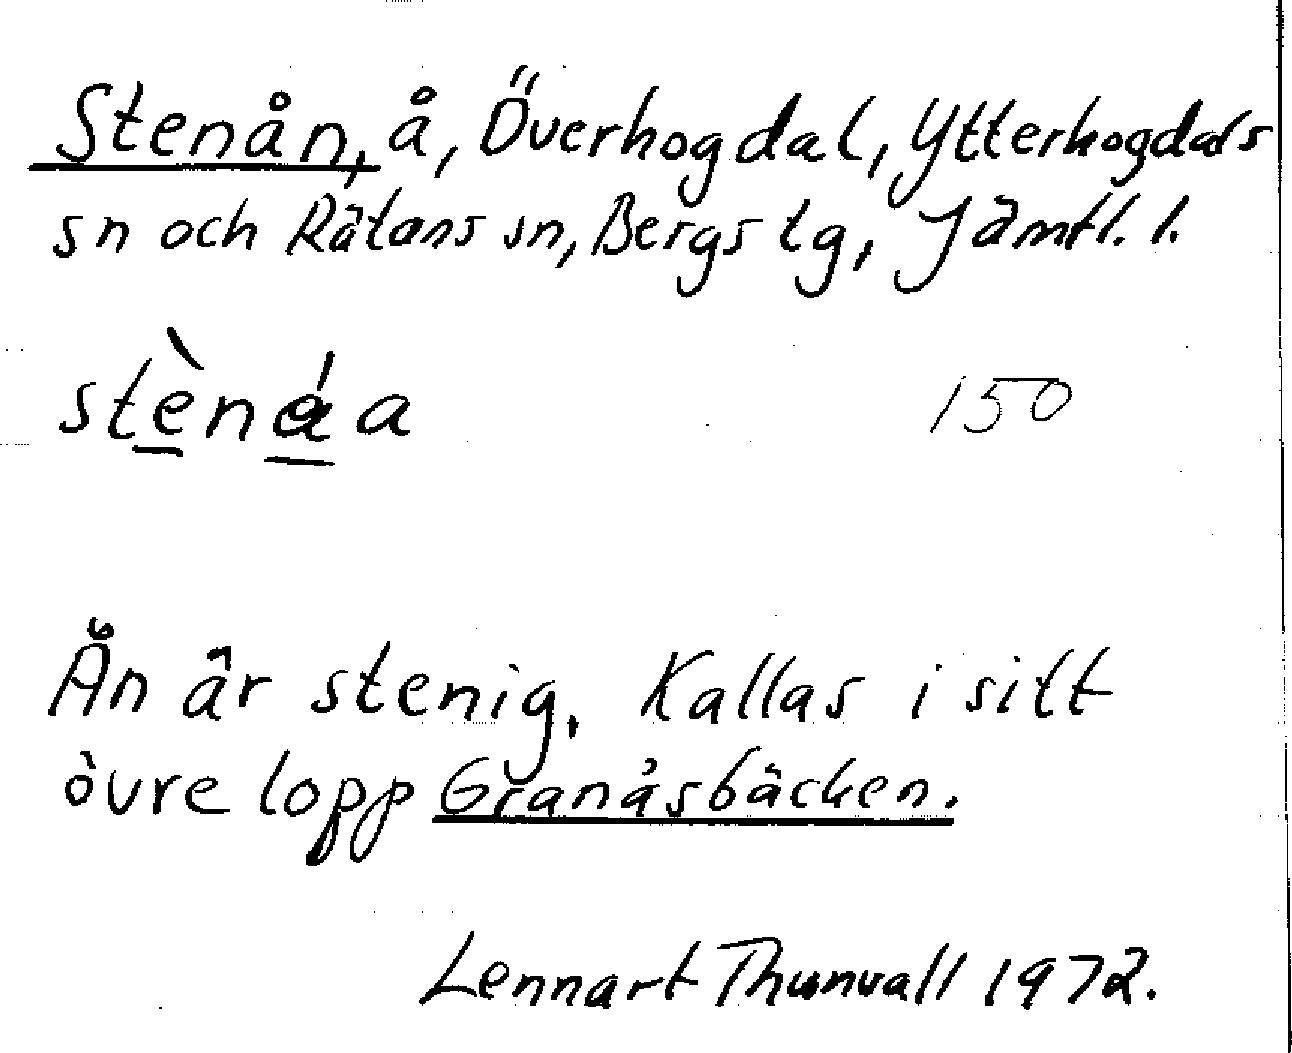 Stenån, å, Överhogdal, Ytterhogdals
sn och Rätans sn, Bergs tg, Jämtl. l.
stènáa 150
Ån är stenig. Kallas i sitt
övre lopp Granåsbäcken.
Lennart Thunvall 1972.